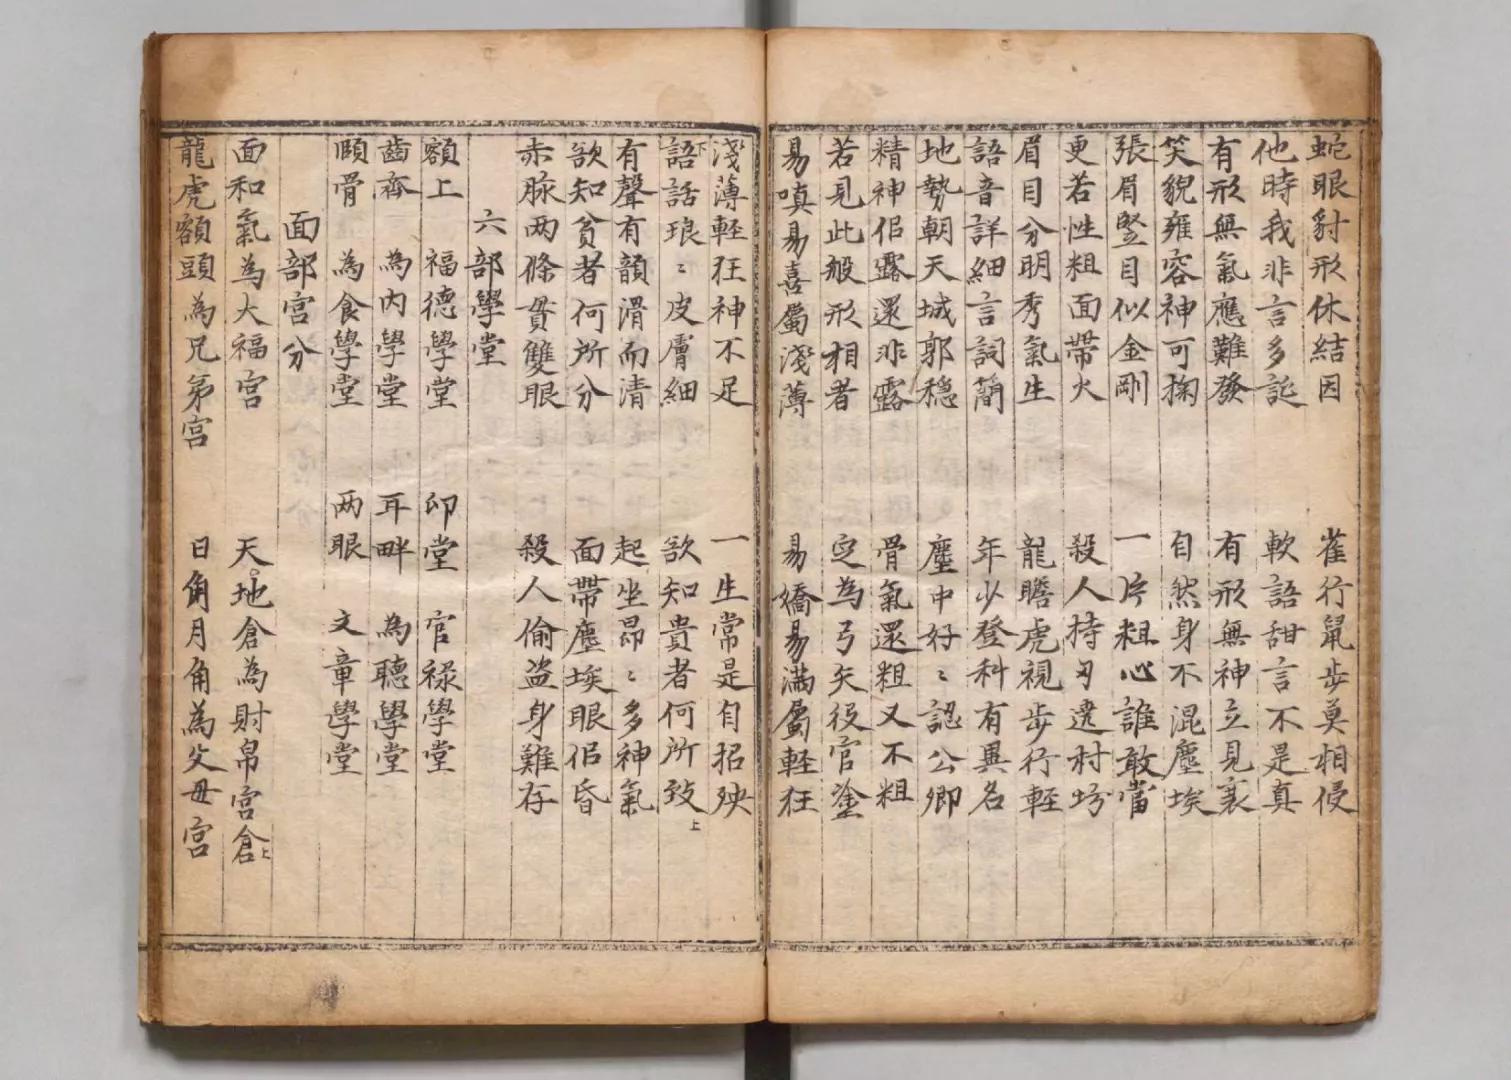 蛇眼豺形休結因 雀行鼠步莫相侵
他時我非言多詆 軟語甜言不是真
有形無氣應難發 有形無神立見衰
笑貌雍容神可掬 自然身不混塵埃
張眉竪目似金剛 一片粗心誰敢當
更若性粗面帶火 殺人持刃遶村坊
眉目分明秀氣生 龍瞻虎視步行輕
語音詳細言詞簡 年少登科有異名
地勢朝天城郭穩 塵中好〻認公卿
精神侶露還非露 骨氣還粗又不粗
若見此般形相者 定為弓矢役官塗
易嗔易喜屬淺薄 易嬌易滿屬軽狂
淺薄軽狂神不足 一生常是自招殃
語話琅〻皮膚細 欲知貴者何所致
有聲有韻滑而清 起坐昂〻多神氣
欲知貧者何所分 面帶塵埃眼侶昏
赤脉两條貫雙眼 殺人偷盗身難存
六部學堂
額上 福德學堂 印堂 官祿學堂
齒齊 為內學堂 耳畔 為聽學堂
頤骨 為食學堂 两眼 文章學堂
面部宮分
面和氣為大福宮 天地倉為財帛宮倉上
龍虎額頭為兄弟宮 日角月角為父母宮